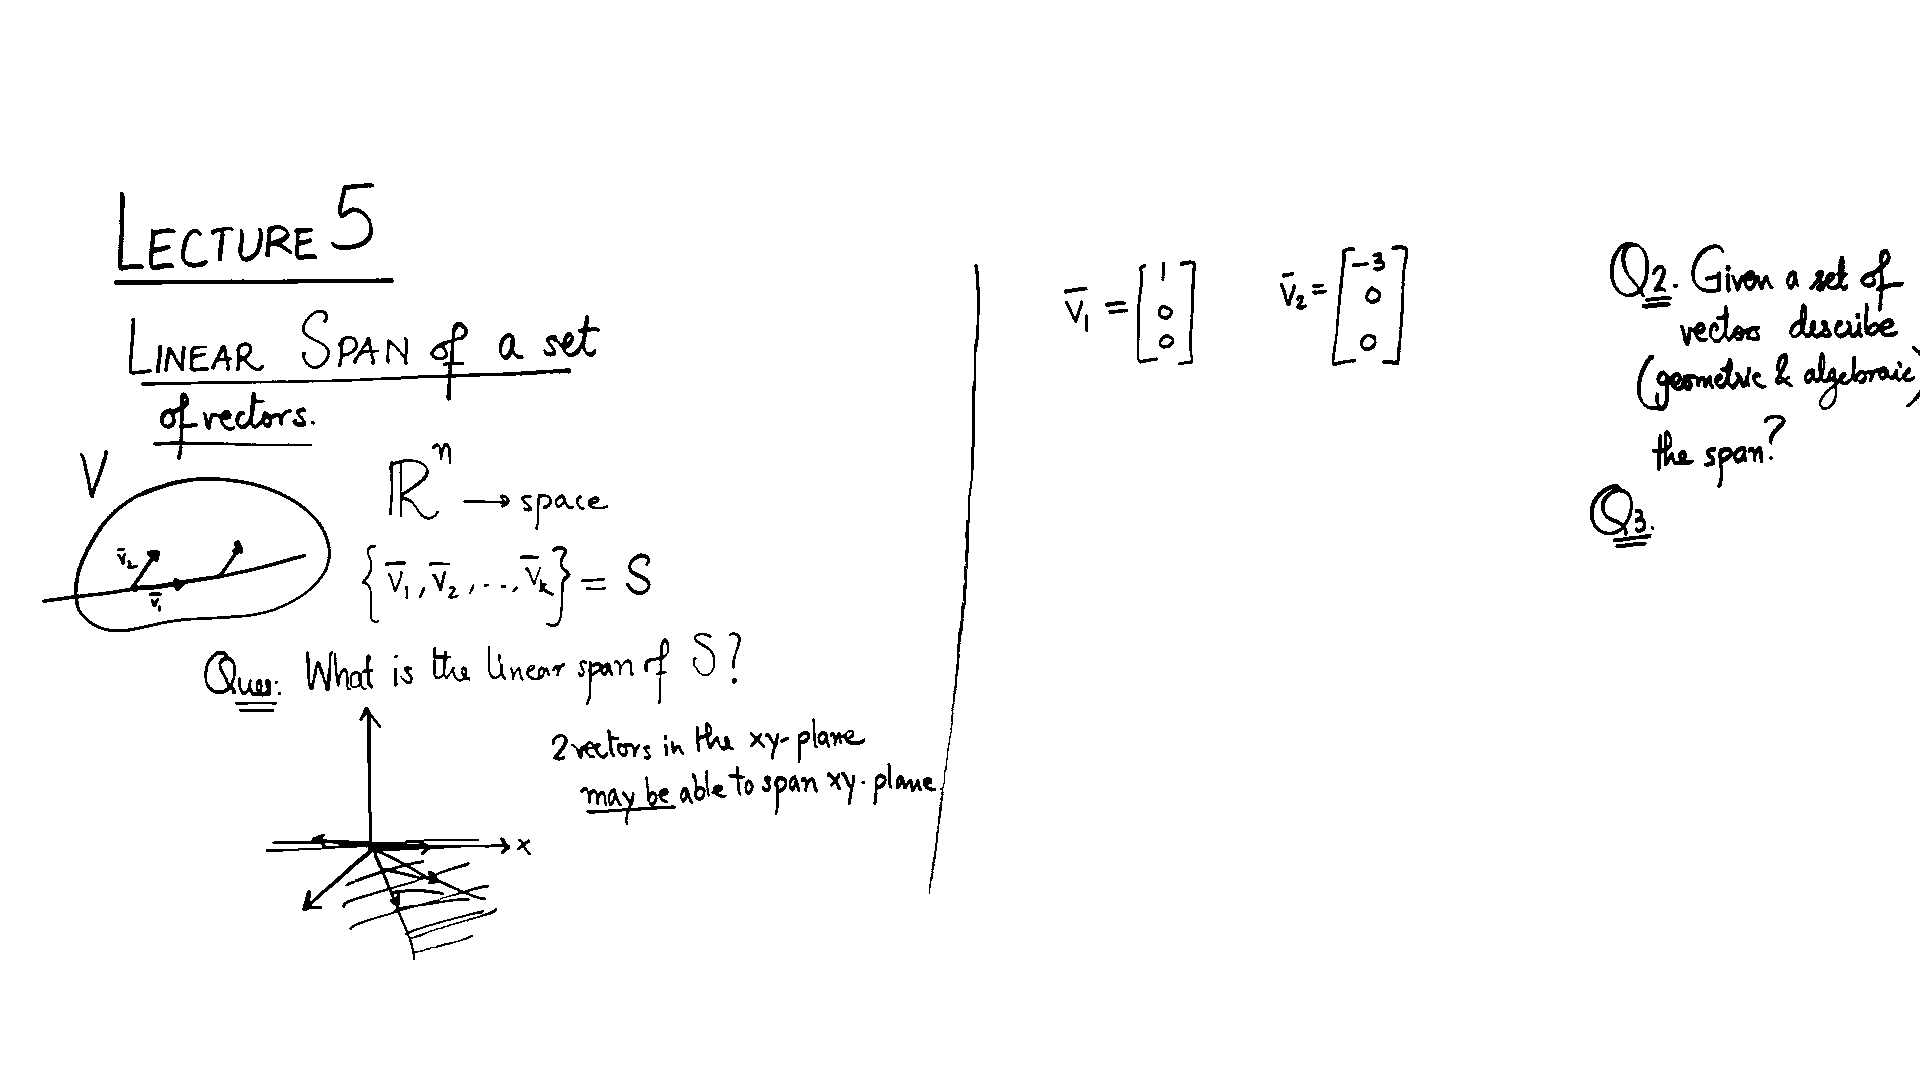 LECTURE 5
LINEAR SPAN of a set
of vectors.
V
ℝⁿ → space
v̄₂
v̄₁
{v̄₁, v̄₂, ..., v̄ₖ} = S
Ques: What is the linear span of S?
2 vectors in the xy-plane
may be able to span xy-plane
x
v̄₁ = [1 0 0]
v̄₂ = [-3 0 0]
Q2. Given a set of
vectors describe
(geometric & algebraic)
the span?
Q3.